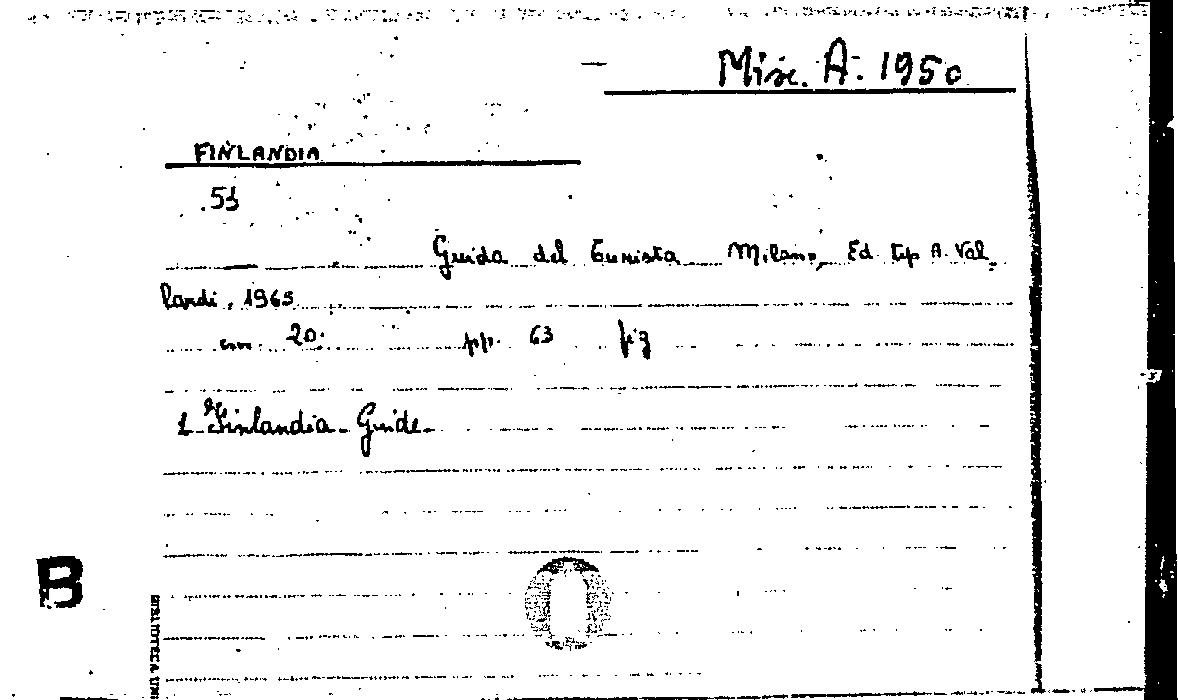 Misc. A. 1950
FINLANDIA
.51
Guida del turista Milano, Ed. tip A. Val_
lardi, 1965
cm. 20. pp. 63 fig
1_ Finlandia_ Guide_
B
BIBLIOTECA UNI